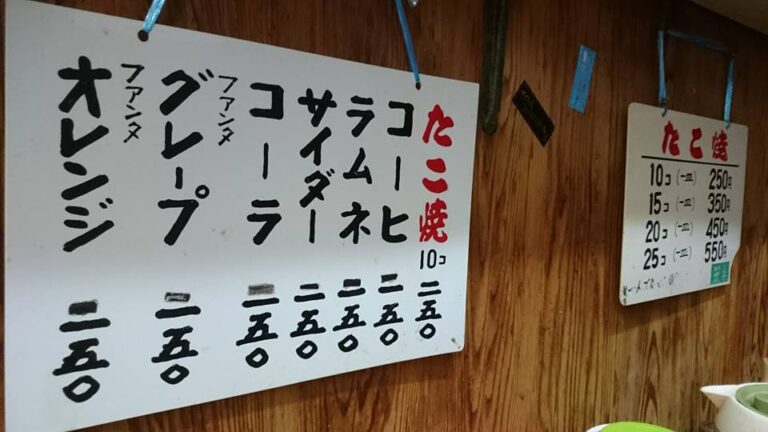 たこ焼 10コ 二五〇
コーヒ 二五〇
ラムネ 二五〇
サイダー 二五〇
コーラ 二五〇
ファンタ グレープ 二五〇
ファンタ オレンジ 二五〇
たこ焼
10コ (一皿) 250円
15コ (一皿) 350円
20コ (一皿) 450円
25コ (一皿) 550円